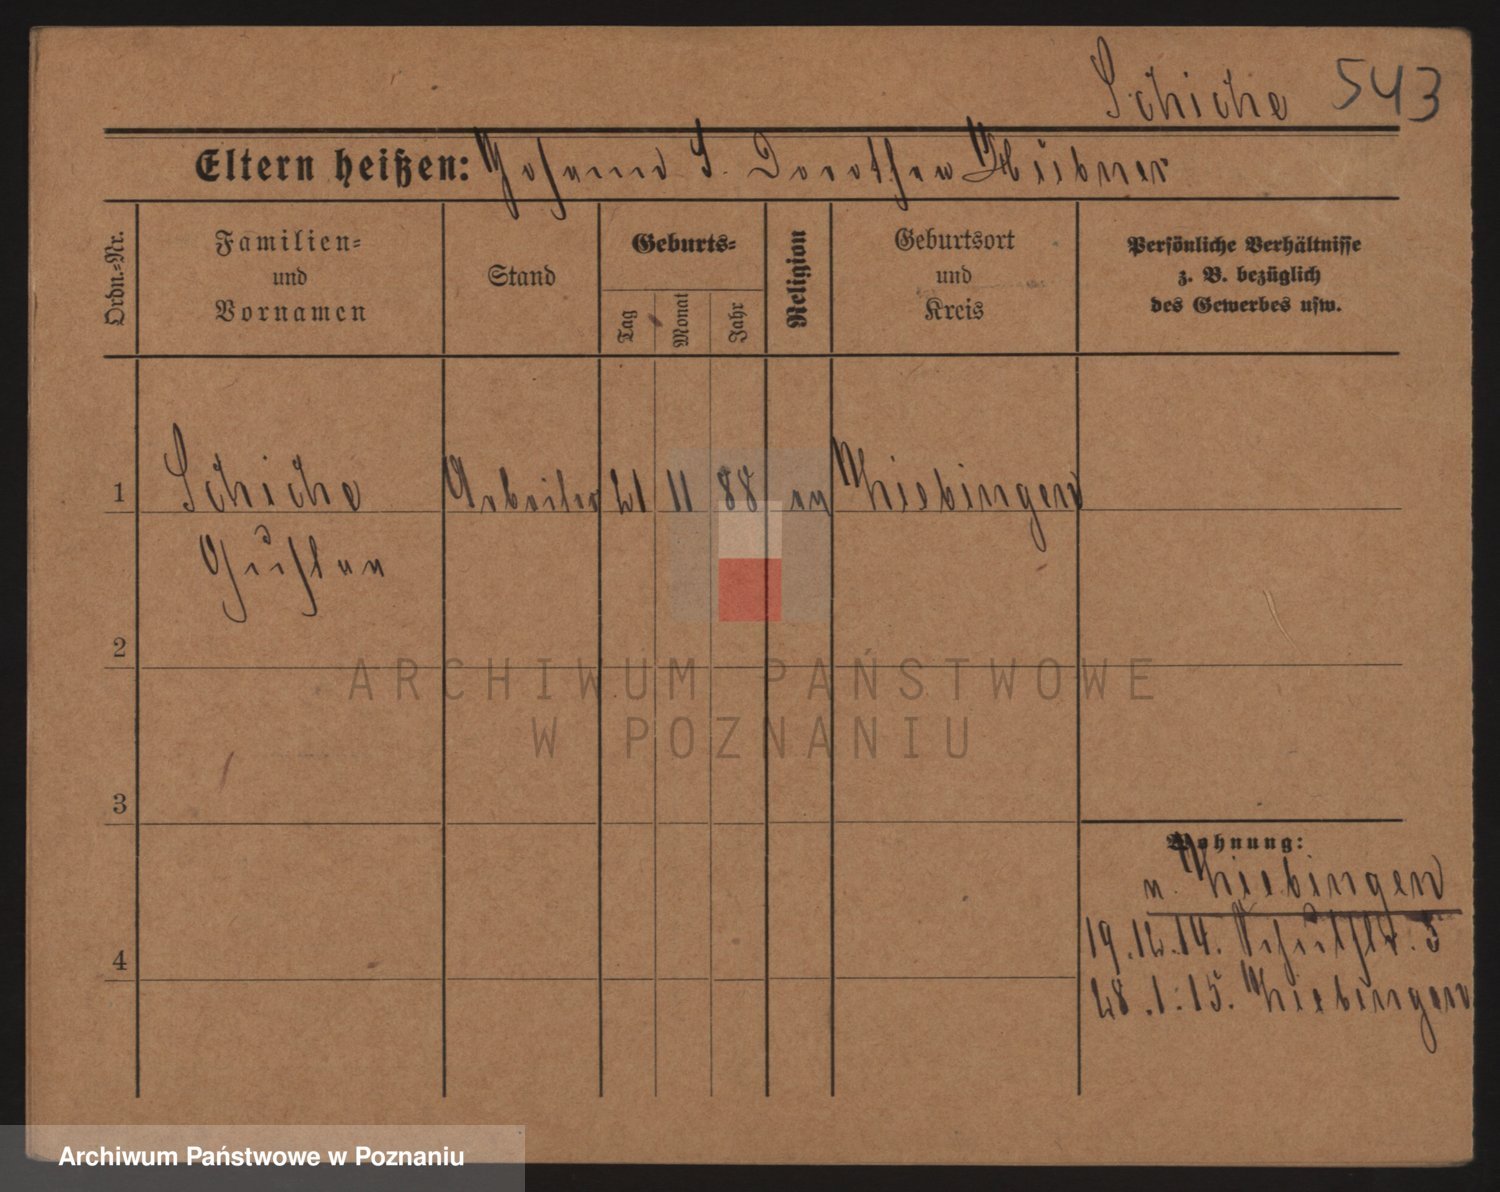 Schiche 543
Eltern heißen: Johann S. Dorothea Hübner
Ordn.=Nr.
Familien=
und
Vornamen
Stand
Geburts=
Tag
Monat
Jahr
Religion
Geburtsort
und
Kreis
Persönliche Verhältnisse
z. B. bezüglich
des Gewerbes usw.
1 Schiche Arbeiter 21 11 88 ev Ziebingen
Gustav
2
ARCHIWUM PAŃSTWOWE
W POZNANIU
3
Wohnung:
n. Ziebingen
19.12.14. Schulstr. 5
4
28.1.15. Ziebingen
Archiwum Państwowe w Poznaniu